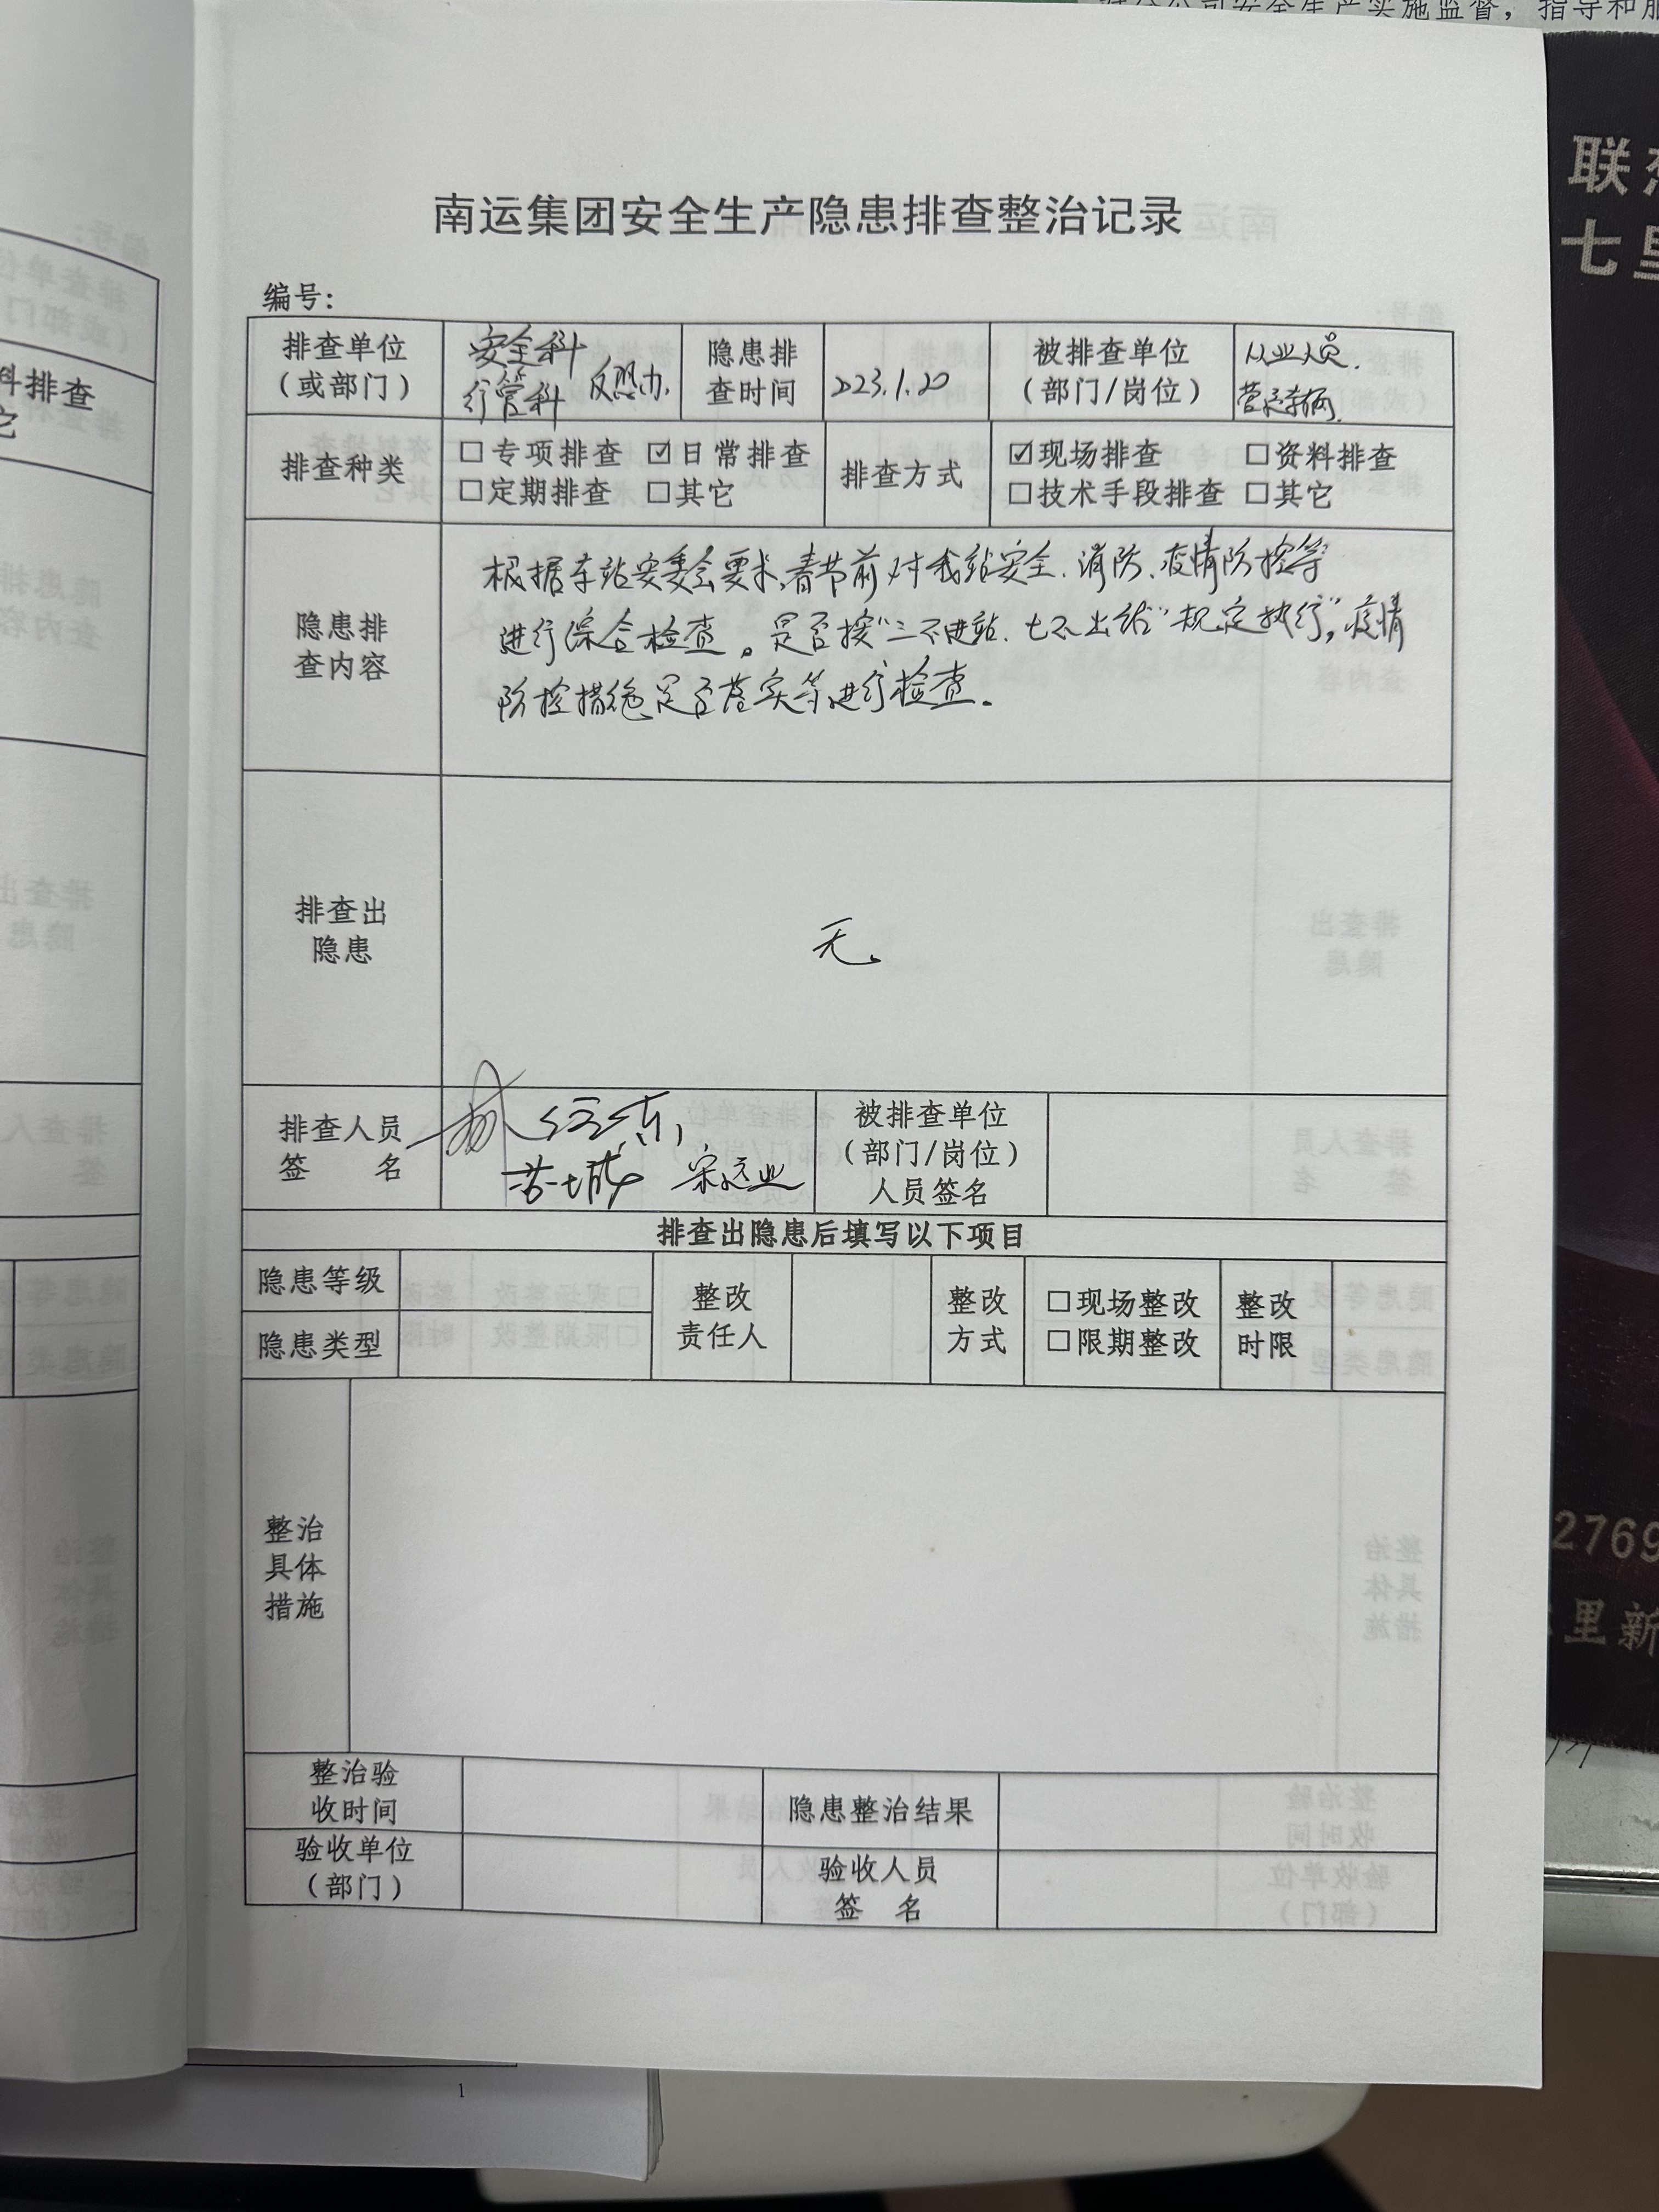 对分公司安全生产实施监督，指导和服
南运集团安全生产隐患排查整治记录
编号：
排查单位
（或部门）
安全科
行管科 反恐办.
隐患排
查时间
2023.1.20
被排查单位
（部门/岗位）
从业人员.
营运车辆.
排查种类
□专项排查 ☑日常排查
□定期排查 □其它
排查方式
☑现场排查 □资料排查
□技术手段排查 □其它
隐患排
查内容
根据车站安委会要求,春节前对我站安全、消防、疫情防控等
进行综合检查。是否按“三不进站、七不出站”规定执行,疫情
防控措施是否落实等进行检查。
排查出
隐患
无。
排查人员
签 名
宋运业
被排查单位
（部门/岗位）
人员签名
排查出隐患后填写以下项目
隐患等级
隐患类型
整改
责任人
整改
方式
□现场整改
□限期整改
整改
时限
整治
具体
措施
整治验
收时间
隐患整治结果
验收单位
（部门）
验收人员
签 名
1
料排查
它
联想
七里
2769
里新